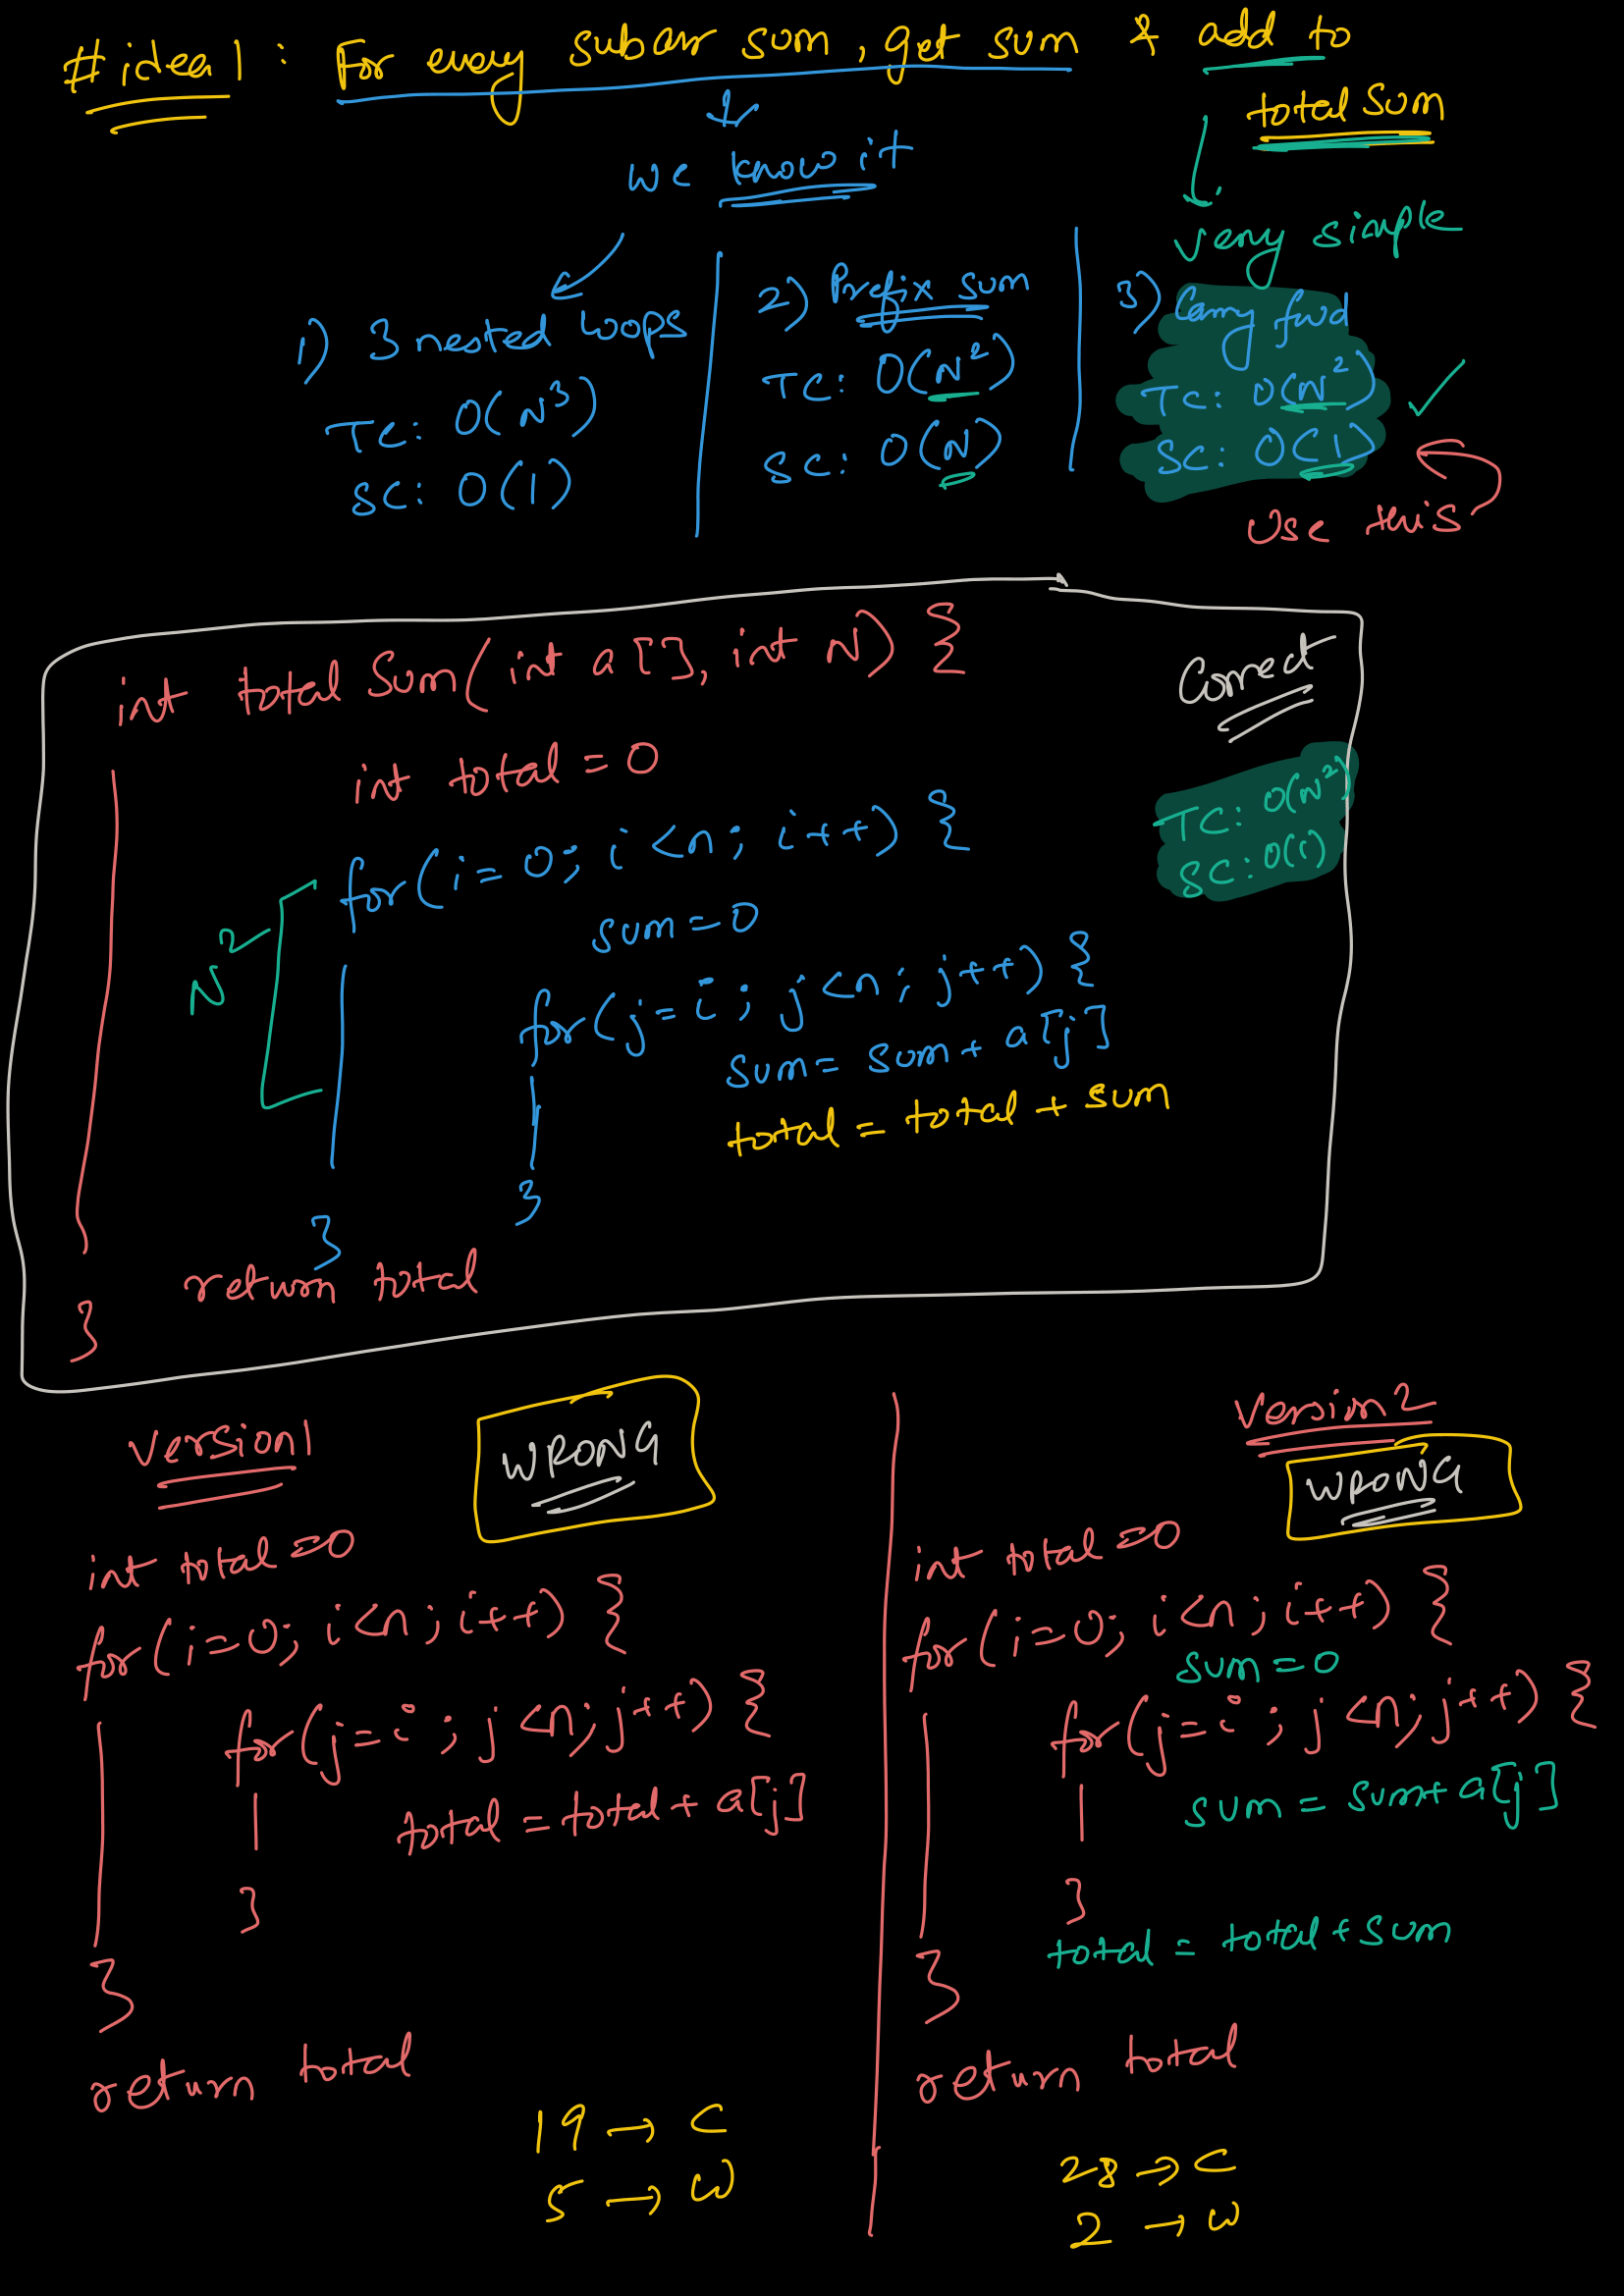 #idea 1 : For every subarr sum, get sum & add to
total sum
we know it
very simple
1) 3 nested loops
TC: O(N³)
SC: O(1)
2) Prefix sum
TC: O(N²)
SC: O(N)
3) Carry fwd
TC: O(N²)
SC: O(1)
Use this
int total Sum(int a[], int N) {
Correct
int total = 0
TC: O(N²)
SC: O(1)
for(i=0; i<n; i++) {
sum=0
N²
for(j=i; j<n; j++) {
sum = sum + a[j]
total = total + sum
}
}
return total
}
Version1
WRONG
int total =0
for(i=0; i<n; i++) {
for(j=i; j<n; j++) {
total = total + a[j]
}
}
return total
19 → C
5 → W
Version2
WRONG
int total =0
for(i=0; i<n; i++) {
sum=0
for(j=i; j<n; j++) {
sum = sum+ a[j]
}
total = total + sum
}
return total
28 → C
2 → W